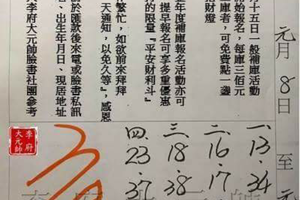 元月8日至元
十五日一般補庫活動
報名,每庫三佰元
庫者,可免費點一盞
財燈
年度補庫報名活動亦可
提早報名可享多重優惠
的限量『平安財利斗』
繁忙,如欲前來拜拜
天通知,以免久等』,感恩
於匯款後來電或臉書私訊
、出生年月日、現居地址
李府大元帥臉書社團參考
李府
大元帥
一.13.34
二.16.17
三.18.38
四.23.37